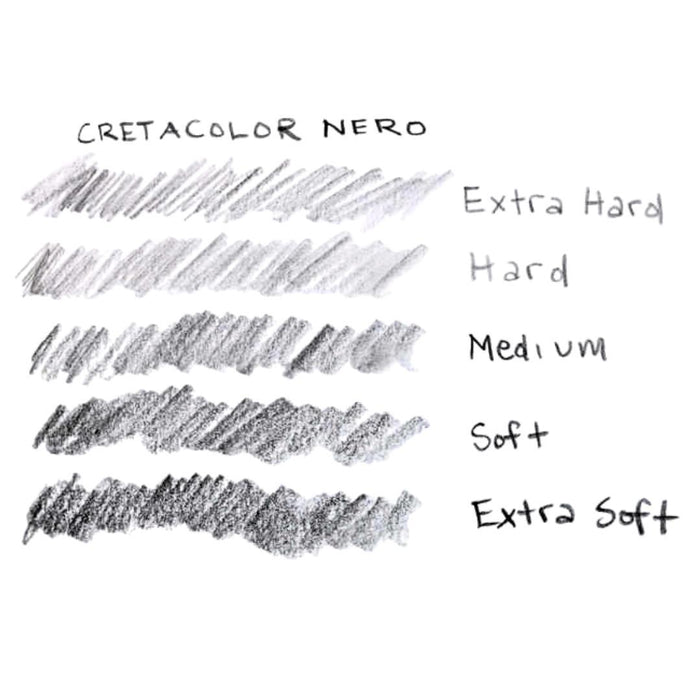 CRETACOLOR NERO
Extra Hard
Hard
Medium
Soft
Extra Soft